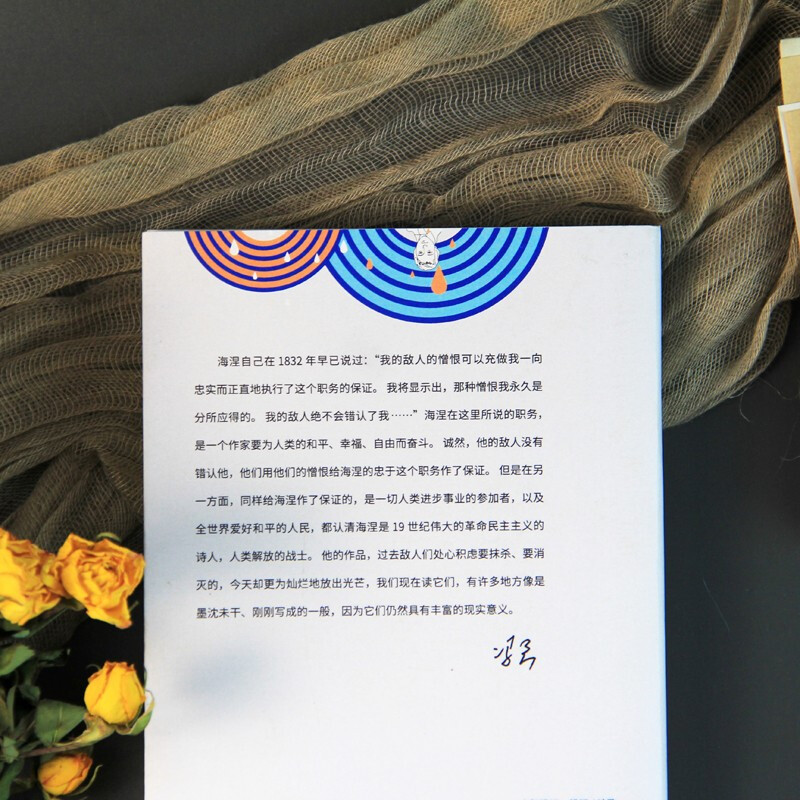 海涅自己在 1832 年早已说过：“我的敌人的憎恨可以充做我一向
忠实而正直地执行了这个职务的保证。 我将显示出，那种憎恨我永久是
分所应得的。 我的敌人绝不会错认了我……” 海涅在这里所说的职务，
是一个作家要为人类的和平、幸福、自由而奋斗。 诚然，他的敌人没有
错认他，他们用他们的憎恨给海涅的忠于这个职务作了保证。 但是在另
一方面，同样给海涅作了保证的，是一切人类进步事业的参加者，以及
全世界爱好和平的人民，都认清海涅是 19 世纪伟大的革命民主主义的
诗人，人类解放的战士。 他的作品，过去敌人们处心积虑要抹杀、要消
灭的，今天却更为灿烂地放出光芒，我们现在读它们，有许多地方像是
墨沈未干、刚刚写成的一般，因为它们仍然具有丰富的现实意义。
冯至